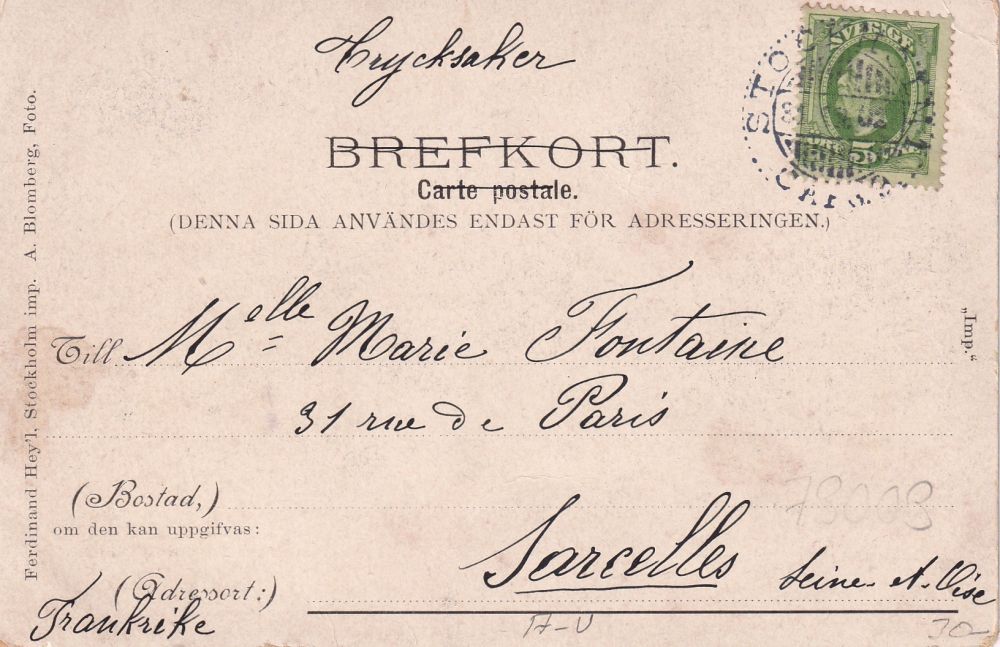 Trycksaker
SVERIGE
5
STOCKHOLM
BREFKORT.
Carte postale.
(DENNA SIDA ANVÄNDES ENDAST FÖR ADRESSERINGEN.)
Till Melle Marie Fontaine
31 rue de Paris
(Bostad,)
om den kan uppgifvas:
78008
Sarcelles Seine-et-Oise
(Adressort:)
Frankrike
30-
Ferdinand Hey'l, Stockholm imp. A. Blomberg, Foto.
„Imp.“